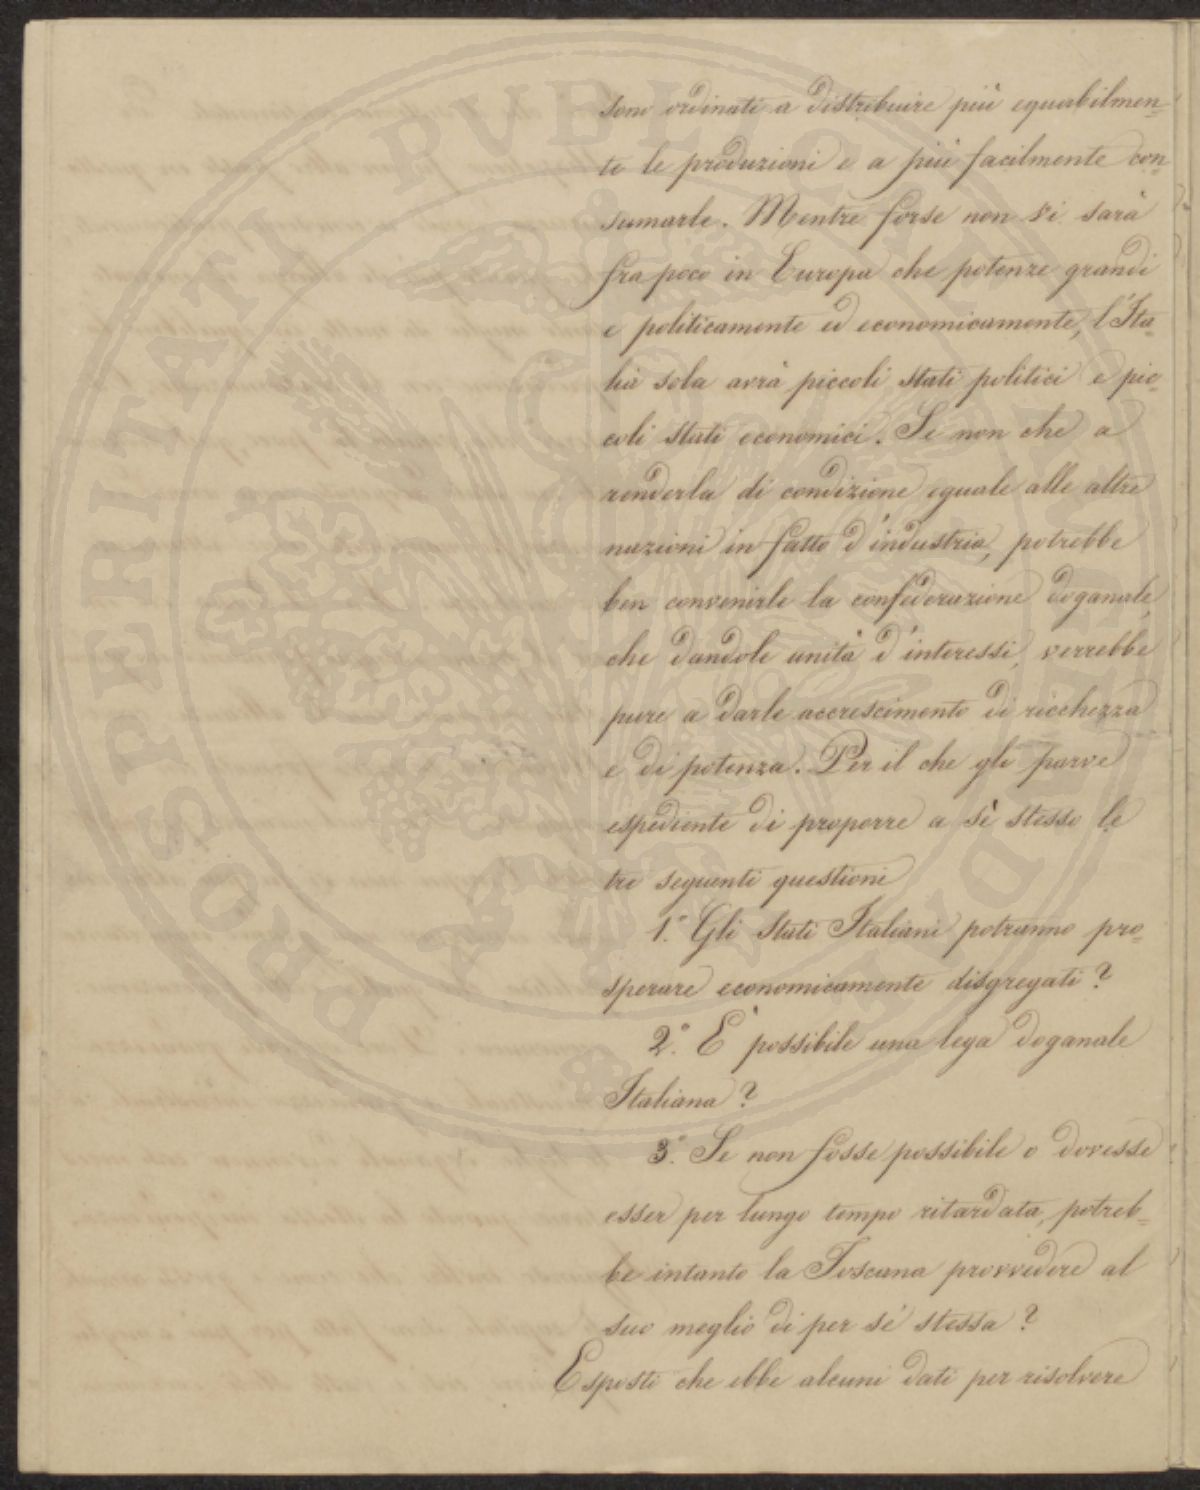 sono ordinati a distribuire più equabilmen=
te le produzioni e a più facilmente con=
sumarle. Mentre forse non vi sarà
fra poco in Europa che potenze grandi
e politicamente ed economicamente, l'Ita=
lia sola avrà piccoli Stati politici e pic=
coli Stati economici. Se non che a
renderla di condizione eguale alle altre
nazioni in fatto d'industria, potrebbe
ben convenirle la confederazione doganale,
che dandole unità d'interessi, verrebbe
pure a darle accrescimento di ricchezza
e di potenza. Per il che gli parve
espediente di proporre a sè stesso le
tre seguenti questioni
1.° Gli Stati Italiani potranno pro=
sperare economicamente disgregati?
2.° E' possibile una lega doganale
Italiana?
3.° Se non fosse possibile o dovesse
esser per lungo tempo ritardata, potreb=
be intanto la Toscana provvedere al
suo meglio di per sè stessa?
Esposti che ebbe alcuni dati per risolvere
PROSPERITATI PVBLICAE